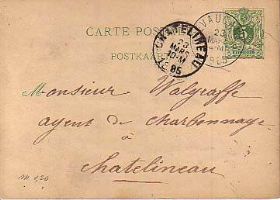 CARTE POSTALE
POSTKAART
CHATELINEAU
23
MARS
10-M
1885
5
23
Monsieur Walgraffe
agent de Charbonnage
à
Chatelineau